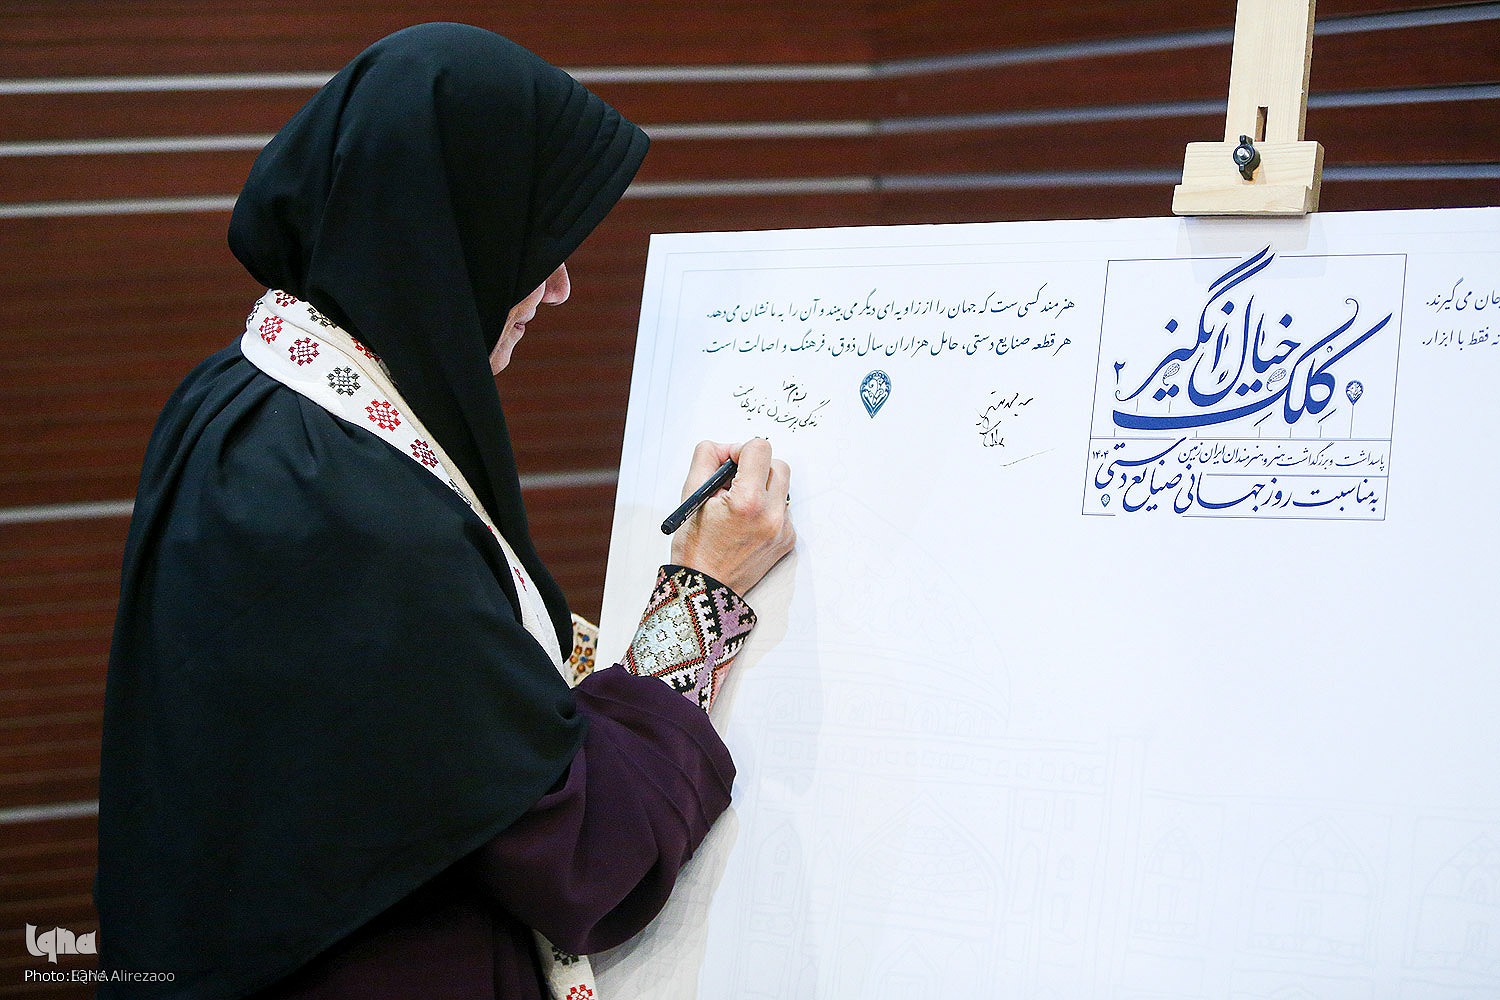 هنرمند کسی‌ست که جهان را از زاویه‌ای دیگر می‌بیند و آن را به ما نشان می‌دهد.
هر قطعه صنایع دستی، حامل هزاران سال ذوق، فرهنگ و اصالت است.
جان می‌گیرند.
نه فقط با ابزار.
کلک خیال‌انگیز ۲
پاسداشت و بزرگداشت هنر و هنرمندان ایران زمین
۱۴۰۴
به مناسبت روز جهانی صنایع دستی
بنام خدا
زندگی
Iqna
Photo: Alirezaoo